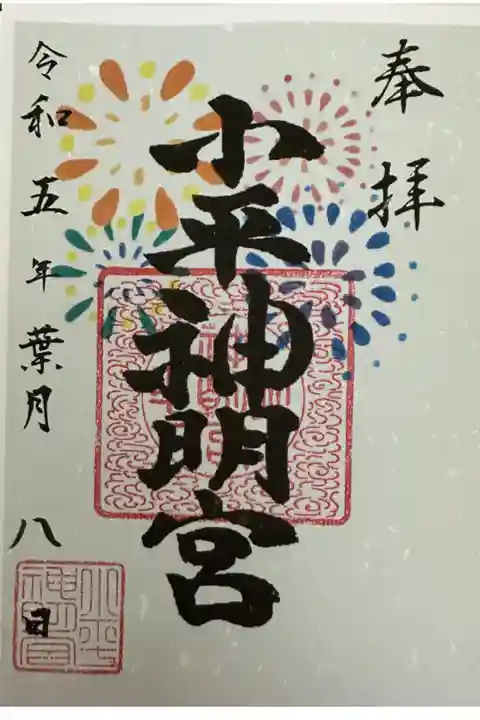 奉拝
小平神明宮
令和五年葉月八日
小平神明宮